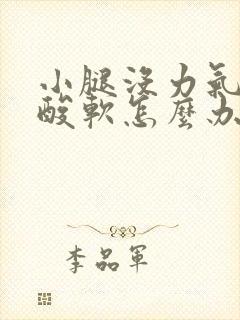 小腿沒力氣
酸軟怎麼办
李品軍